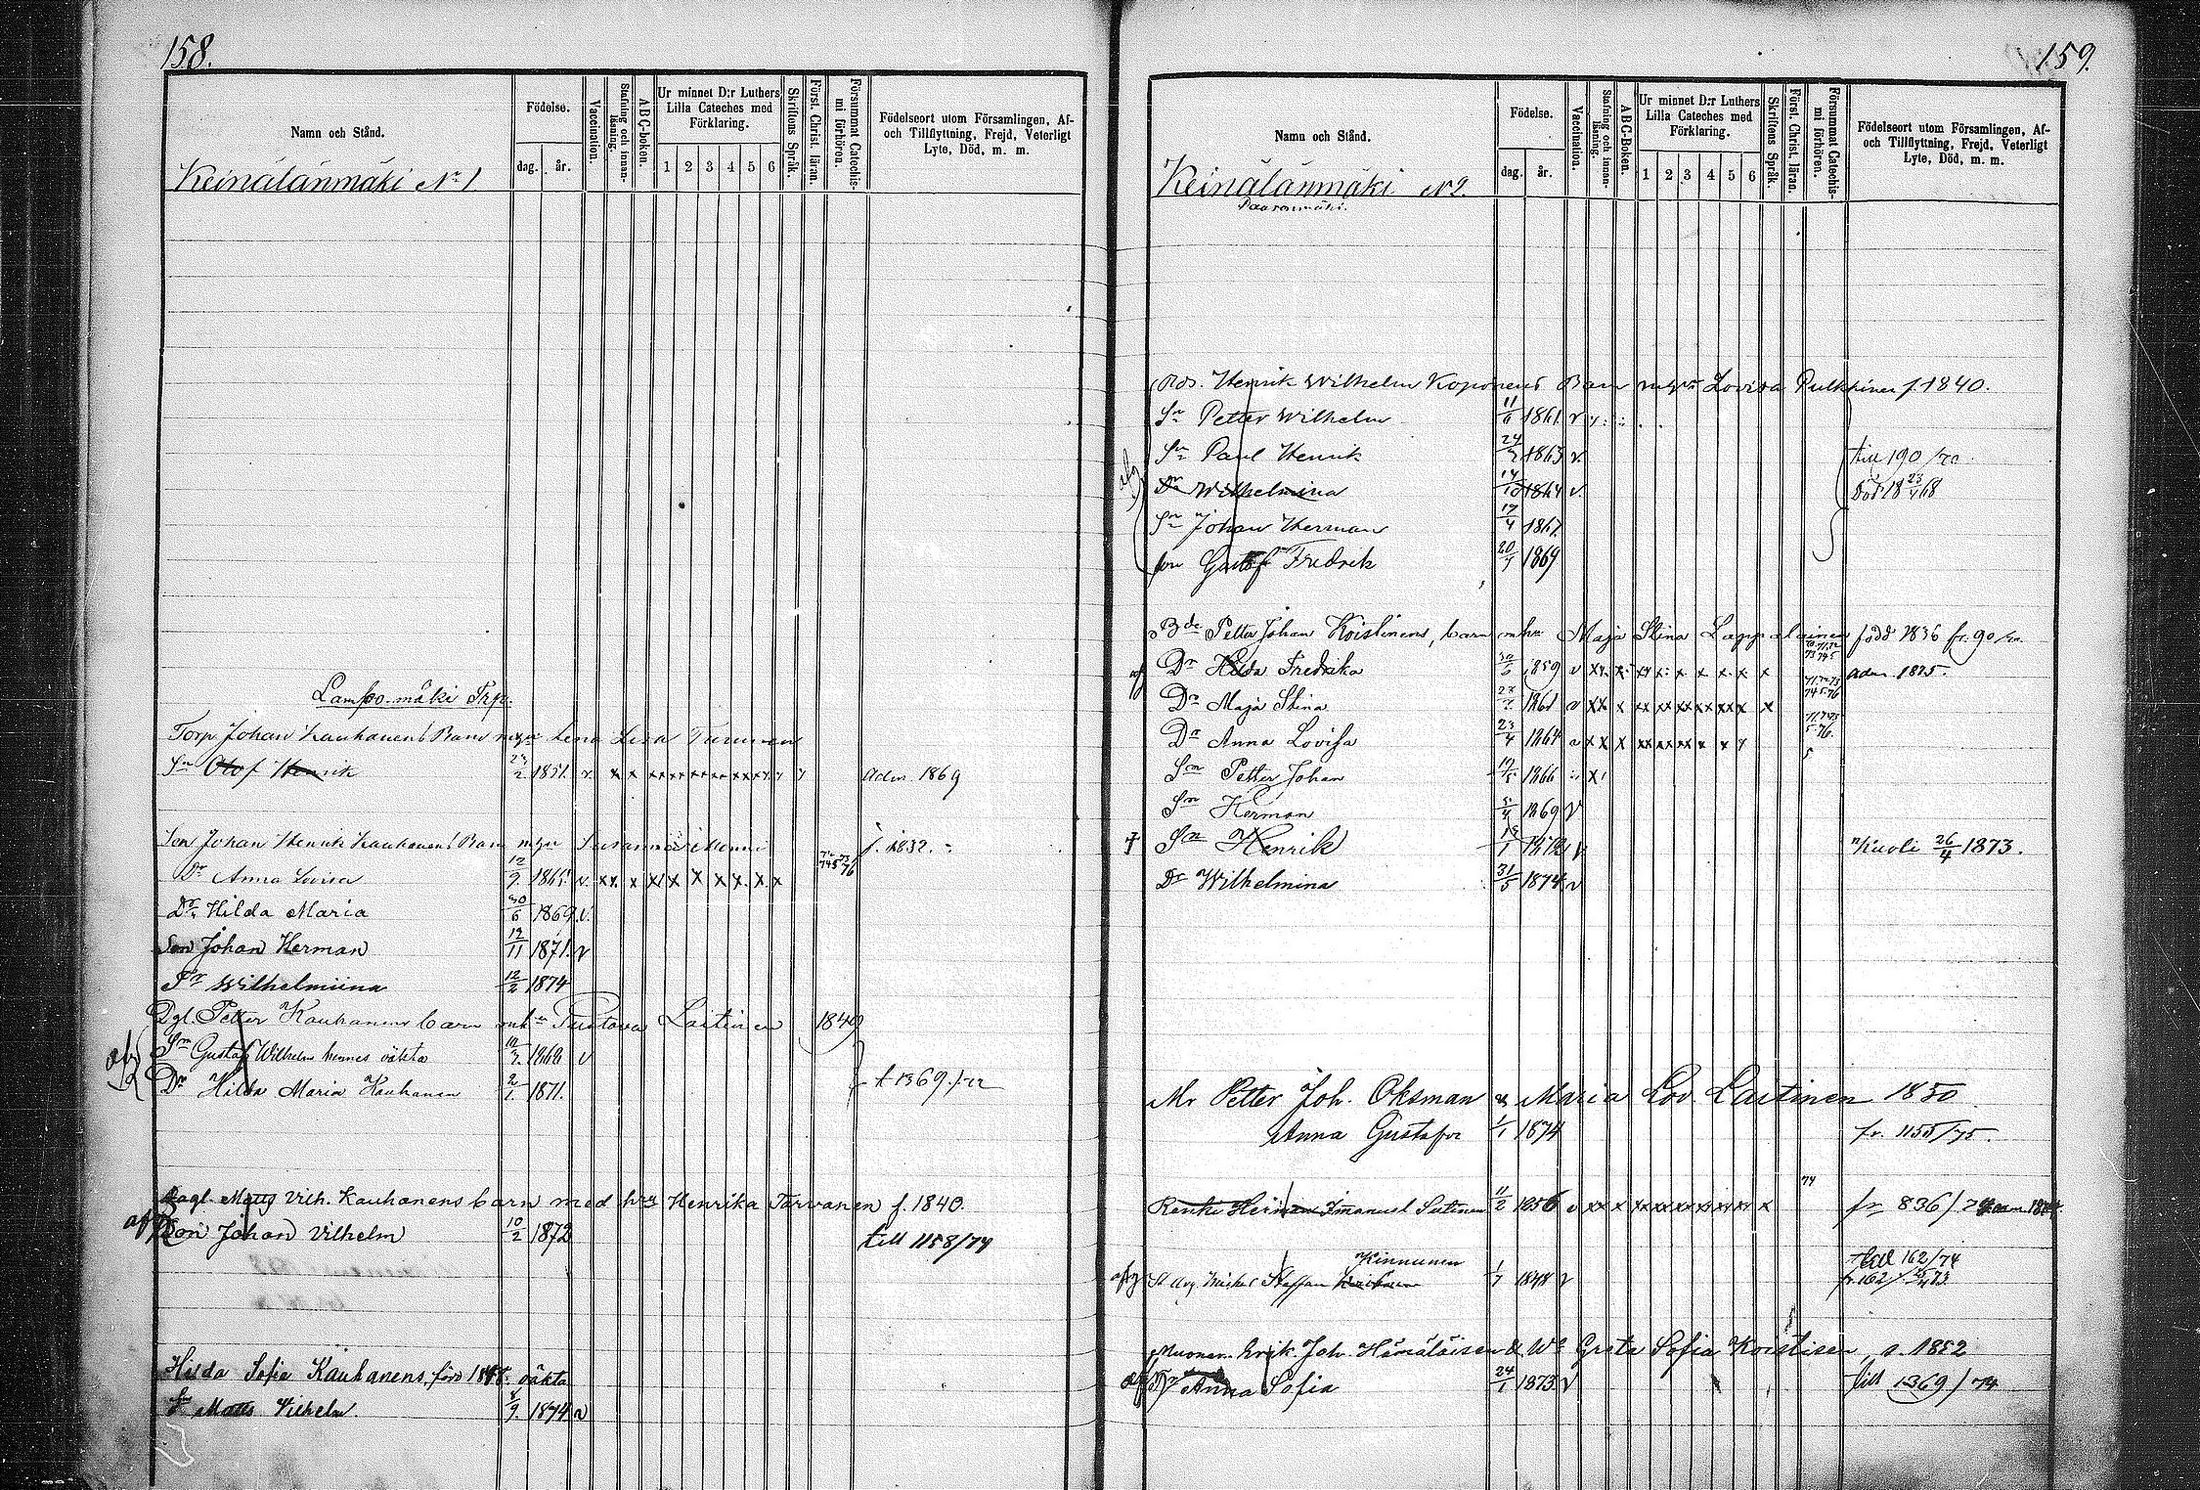 158.
Namn och Stånd.
Födelse.
dag. år.
Vaccination.
Stafning och innan-läsning.
ABC-boken.
Ur minnet D:r Luthers Lilla Cateches med Förklaring.
1 2 3 4 5 6
Skriftens Språk.
Först. Christ. läran.
Försummat Catechis-mi förhören.
Födelseort utom Församlingen, Af-
och Tillflyttning, Frejd, Veterligt
Lyte, Död, m. m.
Keinälänmäki No 1
Lampo-mäki Trp.
Torp. Johan Kauhanens Barn m. Lena Lisa Turunen
Sn Olof Henrik 23/2 1851. v. x x xx xx xx xx xx Adm. 1869
Son Johan Henrik Kauhanens Barn f. 1832.
Dr Anna Lovisa 12/9 1865. v. xx x xx x x x x. x. x
Dr Hilda Maria 30/6 1869 v.
Son Johan Herman 12/11 1871. v
Dr Wilhelmiina 12/2 1874
Dgl. Petter Kauhanens barn Gustava Laitinen 1849
Sn Gustaf Wilhelm hennes oäkta 1868 v
Dr Hilda Maria Kauhanen 2/1 1871. t 1369./72
Dagl. Matts Vilh. Kauhanens barn med hru Henrika Tarvanen f. 1840.
afg Son Johan Vilhelm 10/2 1872 till 1158/74
Hilda Sofia Kauhanens, född 1848. oäkta
Sn Matts Vilhelm. 8/9. 1874 v
159.
Namn och Stånd.
Födelse.
dag. år.
Vaccination.
Stafning och innan-läsning.
ABC-Boken.
Ur minnet D:r Luthers Lilla Cateches med Förklaring.
1 2 3 4 5 6
Skriftens Språk.
Först. Christ. läran.
Försummat Catechis-mi förhören.
Födelseort utom Församlingen, Af-
och Tillflyttning, Frejd, Veterligt
Lyte, Död, m. m.
Keinälänmäki No 2.
Paavonmäki.
Henrik Wilhelm Koponens Barn Lovisa Pulkkinen f. 1840.
Sn Petter Wilhelm 11/6 1861. v
Sn Paul Henrik 1863 v. till 190/70
Dr Wilhelmina 14/10 1864 v. död 18 23/4 68
Sn Johan Herman 17/4 1867.
Son Gustaf Fredrik 20/4 1869
Bde Petter Johan Koistinens, barn m hu Maja Stina Lappalainen född 1836 fr. 90/
Dr Hilda Fredrika 1859 v adm. 1875.
Dr Maja Stina 1861 v xx x xx xx xx xx x
Dr Anna Lovisa 23/4 1864 v xx x
Sn Petter Johan 1866
Sn Herman 5/4 1869 v
† Sn Henrik 1872 v Kuoli 26/4 1873.
Dr Wilhelmina 31/5 1874 v
Mr Petter Joh. Oksman & Maria Lov. Laitinen 1850
Anna Gustafva 1/1 1874 fr. 1155/75.
Herman Imanuel Sutinen 11/2 1856 v 74 fr 836/74
afg Staffan Kinnunen 1/7 1848 v till 162/74
fr. 162/
Erik Joh. Hämäläisen & Wo Greta Sofia Koistisen, s. 1852
af Dr Anna Sofia 24/1 1873 v till 1369/74